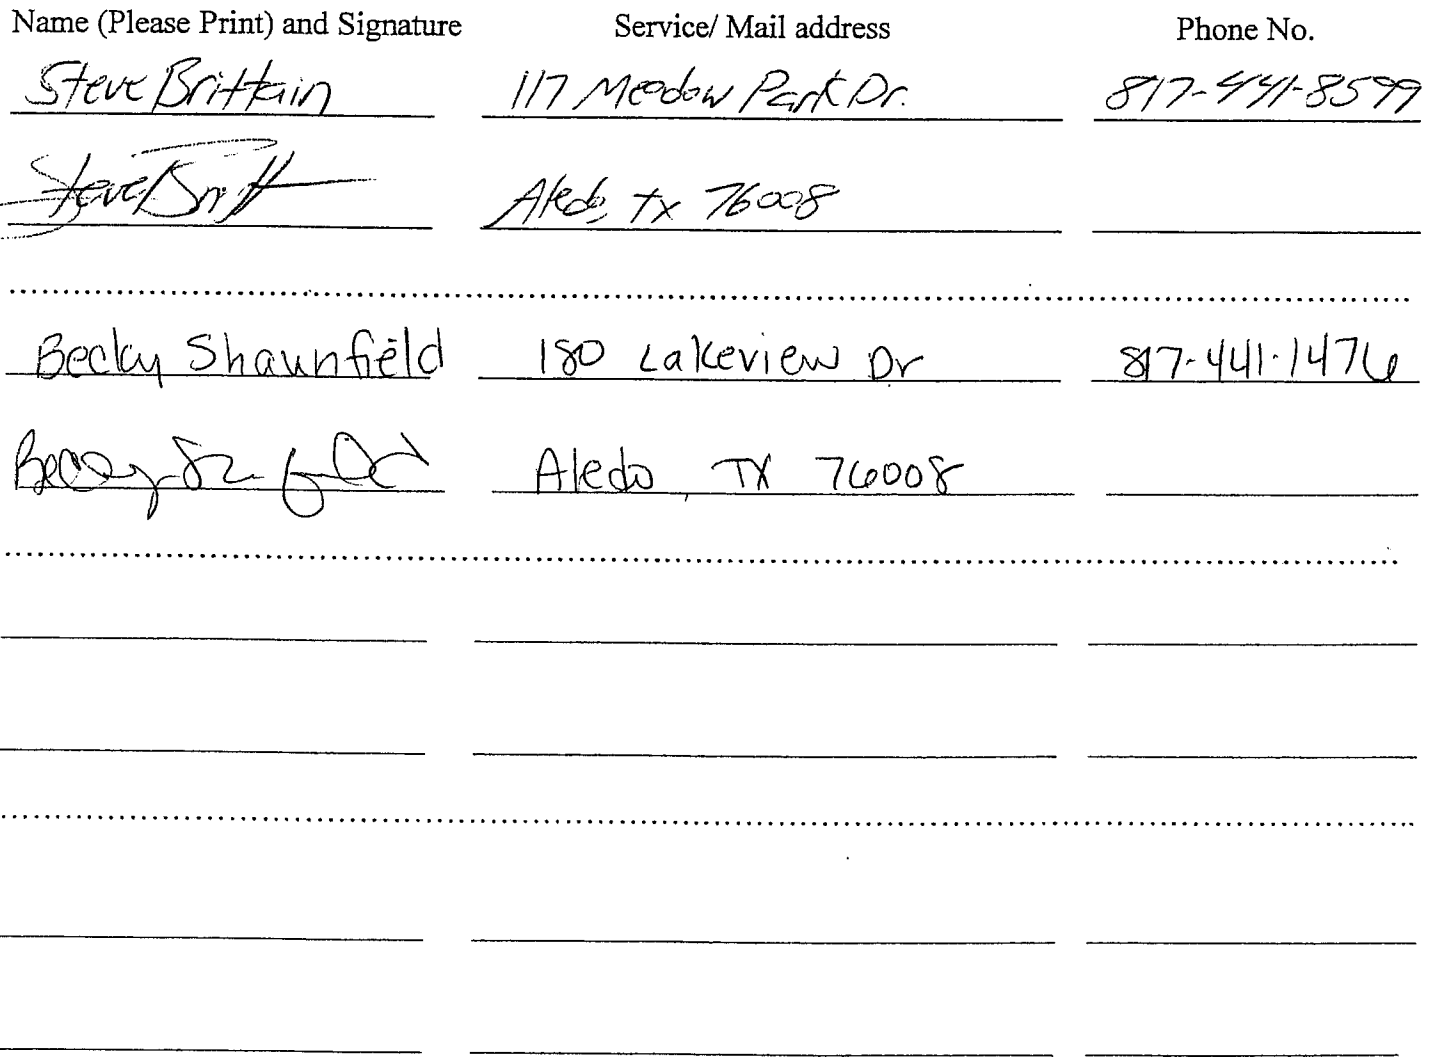 Name (Please Print) and Signature Service/ Mail address Phone No.
Steve Brittain 117 Meadow Park Dr. 817-441-8599
Steve Britt Aledo, Tx 76008
Becky Shaunfield 180 Lakeview Dr 817-441-1476
Becky Aledo, TX 76008